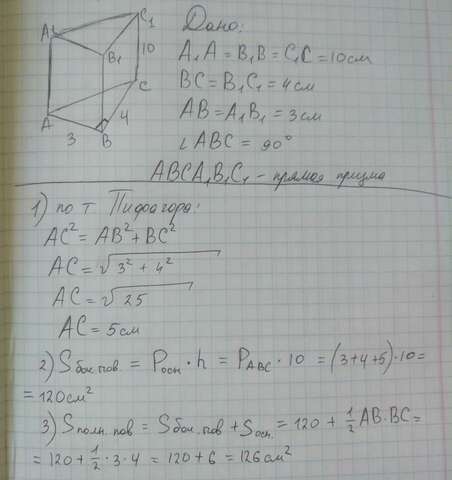 Дано:
A₁A = B₁B = C₁C = 10см
BC = B₁C₁ = 4см
AB = A₁B₁ = 3см
∠ABC = 90°
ABCA₁B₁C₁ - прямая призма
A₁
C₁
B₁
10
C
A
3
4
B
1) по т Пифагора:
AC² = AB² + BC²
AC = √3² + 4²
AC = √25
AC = 5см
2) Sбок.пов. = Pосн · h = PABC · 10 = (3+4+5)·10 =
= 120см²
3) Sполн.пов = Sбок.пов + Sосн. = 120 + 1/2 AB·BC =
= 120 + 1/2 · 3 · 4 = 120 + 6 = 126см²